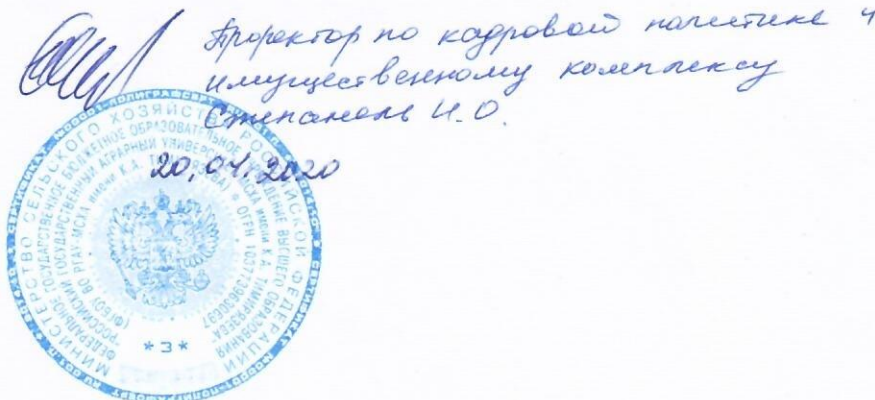 Проректор по кадровой политике и
имущественному комплексу
Степанель И.О.
20.04.2020
МИНИСТЕРСТВО СЕЛЬСКОГО ХОЗЯЙСТВА РОССИЙСКОЙ ФЕДЕРАЦИИ
ФЕДЕРАЛЬНОЕ ГОСУДАРСТВЕННОЕ БЮДЖЕТНОЕ ОБРАЗОВАТЕЛЬНОЕ УЧРЕЖДЕНИЕ ВЫСШЕГО ОБРАЗОВАНИЯ
"РОССИЙСКИЙ ГОСУДАРСТВЕННЫЙ АГРАРНЫЙ УНИВЕРСИТЕТ - МСХА ИМЕНИ К.А. ТИМИРЯЗЕВА"
(ФГБОУ ВО РГАУ-МСХА ИМЕНИ К.А. ТИМИРЯЗЕВА) * ОГРН
*3*